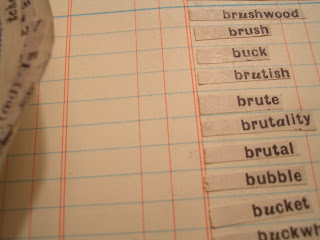 brushwood
brush
buck
brutish
brute
brutality
brutal
bubble
bucket
buckwh